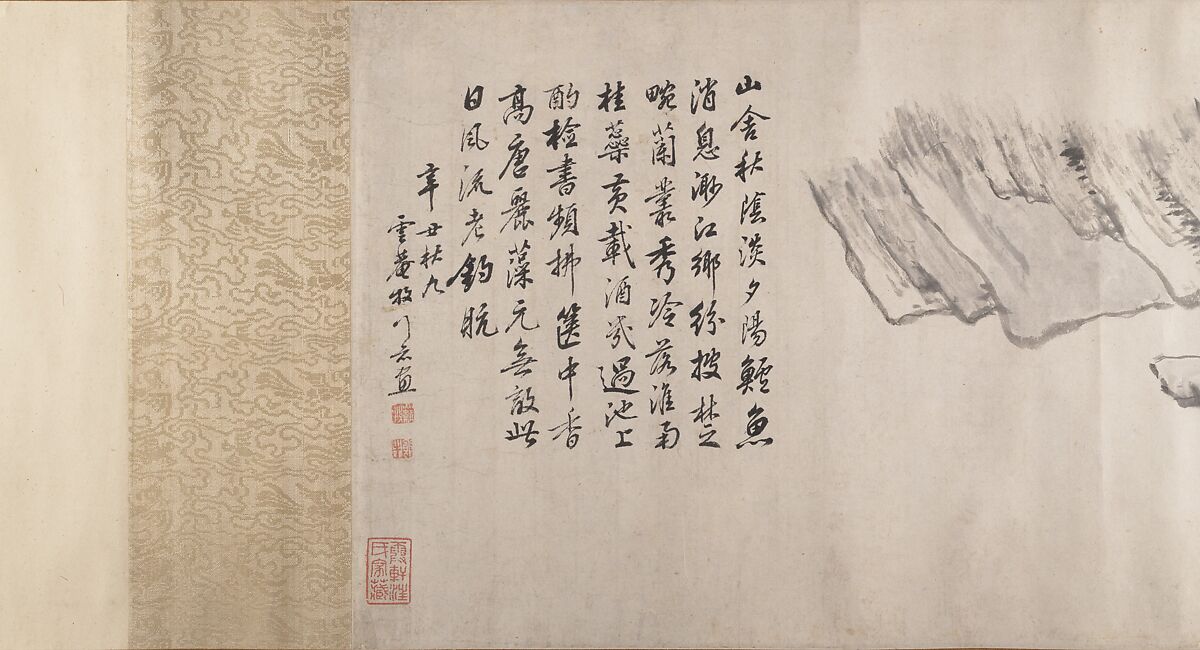 山舍秋陰淡夕陽鱸魚
消息渺江鄉紛披楚
畹蘭叢秀冷落淮南
桂蘂黃載酒幾過池上
酌檢書頻拂篋中香
高唐麗藻元無敵此
日風流老釣航
辛丑秋九
雲菴牧
軒汪
氏家藏